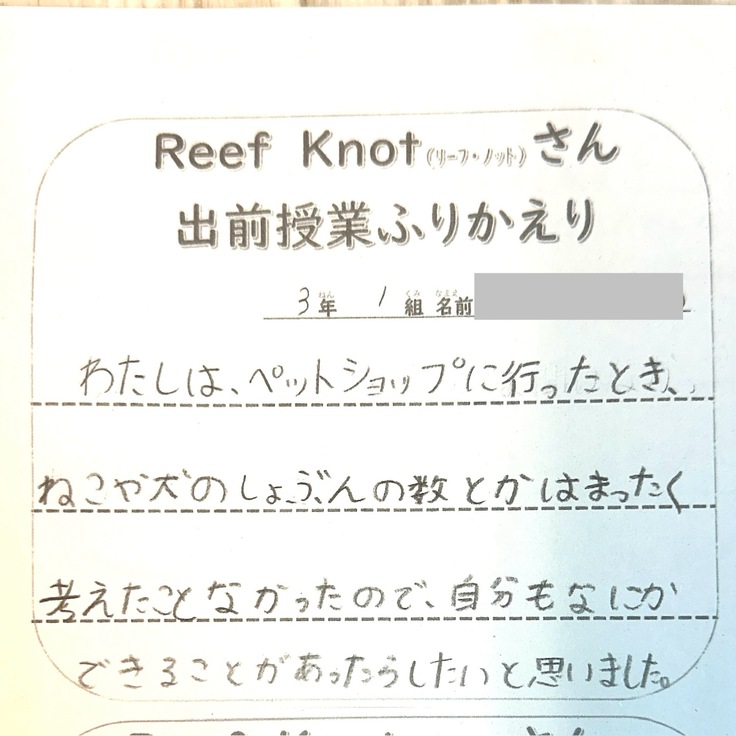 Reef Knot(リーフ・ノット)さん
出前授業ふりかえり
3年 1組 名前
わたしは、ペットショップに行ったとき、
ねこや犬のしょぶんの数とかはまったく
考えたことなかったので、自分もなにか
できることがあったらしたいと思いました。